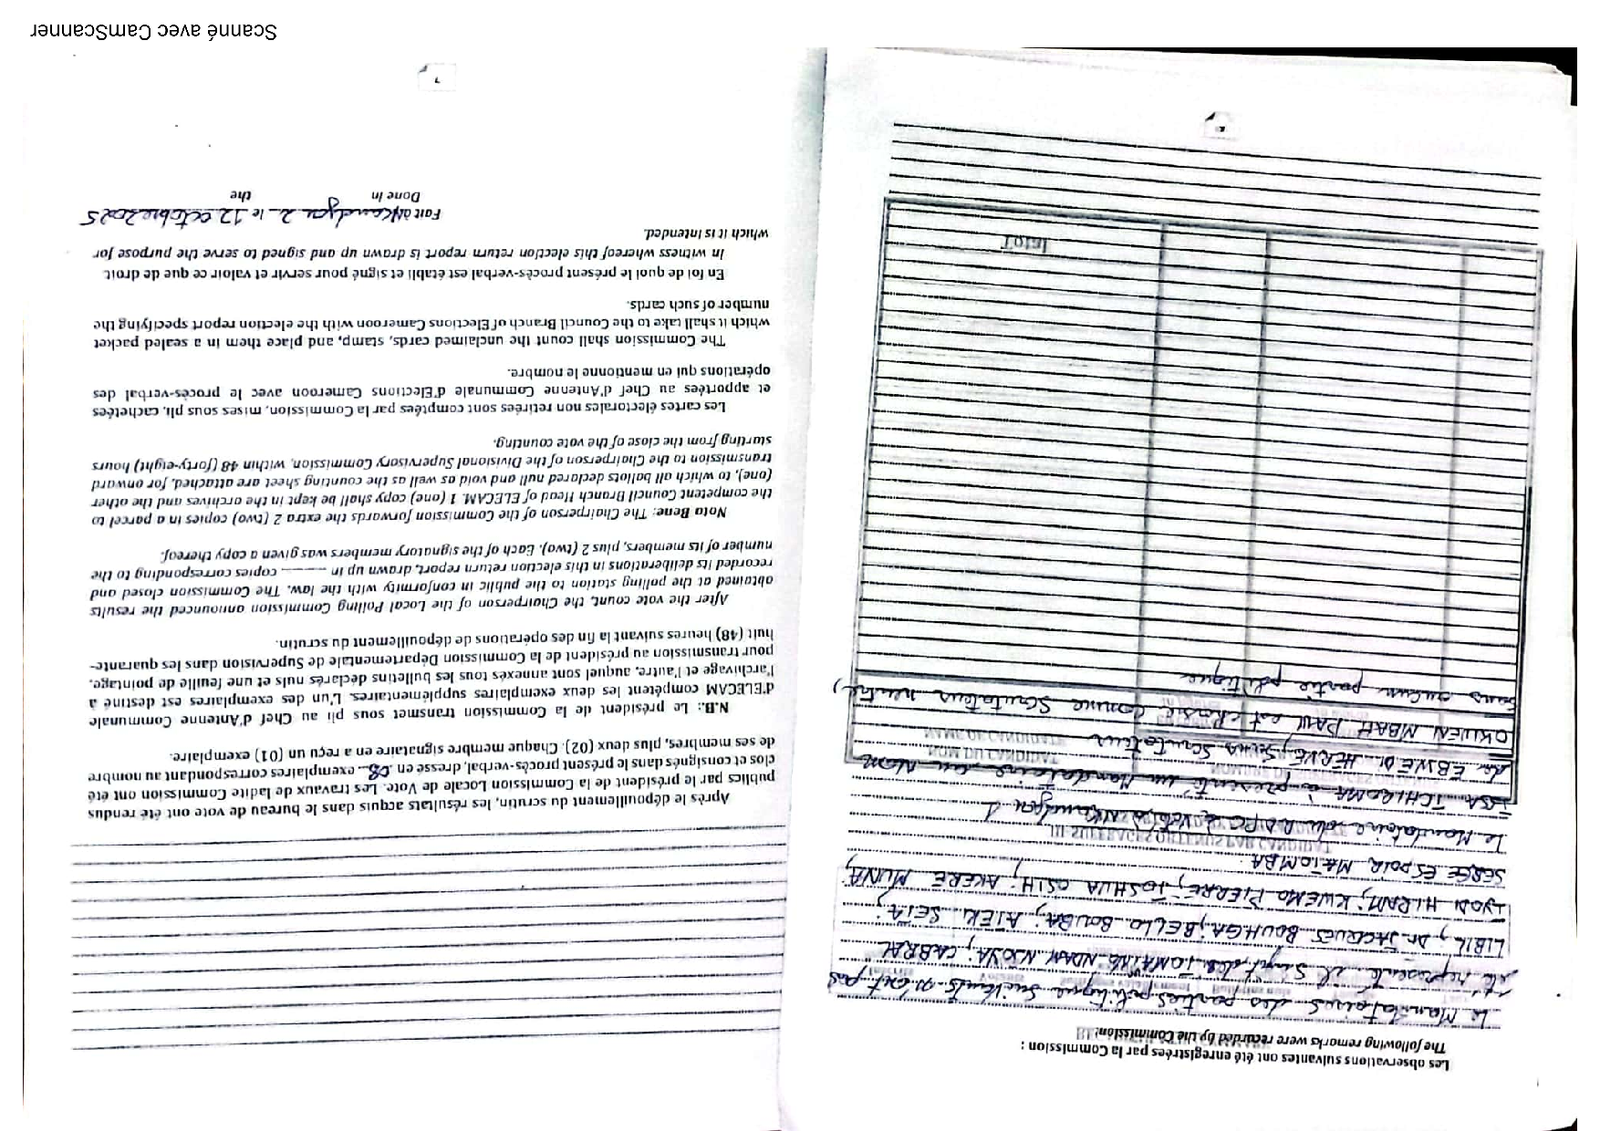 Les observations suivantes ont été enregistrées par la Commission :
The following remarks were recorded by the Commission:
Le Mandataires des parties politique suivants n'ont pas
été représenté il s'agit des TOMAINO NDAM NJOYA, CABRAL
LIBII, Dr JACQUES BOUHGA, BELLO BOUBA, ATEKI SETA,
IYODI HIRAM, KWEMO PIERRE, JOSHUA OSIH, AKERE MUNA,
SERGE ESPOIR MATOMBA.
Le Mandataire du RDPC
ISSA TCHIROMA à présenté un Mandataire au nom
de EBWEDI HERVE, sans Scrutateur
OKUEN MBAH PAUL est choisi comme Scrutateur neutre,
sans aucun partie politique
NOM DU CANDIDAT
NAME OF CANDIDATE
Total
6
Après le dépouillement du scrutin, les résultats acquis dans le bureau de vote ont été rendus
publics par le président de la Commission Locale de Vote. Les travaux de ladite Commission ont été
clos et consignés dans le présent procès-verbal, dressé en 08 exemplaires correspondant au nombre
de ses membres, plus deux (02). Chaque membre signataire en a reçu un (01) exemplaire.
N.B.: Le président de la Commission transmet sous pli au Chef d'Antenne Communale
d'ELECAM compétent les deux exemplaires supplémentaires. L'un des exemplaires est destiné à
l'archivage et l'autre, auquel sont annexés tous les bulletins déclarés nuls et une feuille de pointage,
pour transmission au président de la Commission Départementale de Supervision dans les quarante-
huit (48) heures suivant la fin des opérations de dépouillement du scrutin.
After the vote count, the Chairperson of the Local Polling Commission announced the results
obtained at the polling station to the public in conformity with the law. The Commission closed and
recorded its deliberations in this election return report, drawn up in ——— copies corresponding to the
number of its members, plus 2 (two). Each of the signatory members was given a copy thereof.
Nota Bene: The Chairperson of the Commission forwards the extra 2 (two) copies in a parcel to
the competent Council Branch Head of ELECAM. 1 (one) copy shall be kept in the archives and the other
(one), to which all ballots declared null and void as well as the counting sheet are attached, for onward
transmission to the Chairperson of the Divisional Supervisory Commission, within 48 (forty-eight) hours
starting from the close of the vote counting.
Les cartes électorales non retirées sont comptées par la Commission, mises sous pli, cachetées
et apportées au Chef d'Antenne Communale d'Elections Cameroon avec le procès-verbal des
opérations qui en mentionne le nombre.
The Commission shall count the unclaimed cards, stamp, and place them in a sealed packet
which it shall take to the Council Branch of Elections Cameroon with the election report specifying the
number of such cards.
En foi de quoi le présent procès-verbal est établi et signé pour servir et valoir ce que de droit.
In witness whereof this election return report is drawn up and signed to serve the purpose for
which it is intended.
Fait à Nkoandjou 2 le 12 octobre 2025
Done in the
7
Scanné avec CamScanner